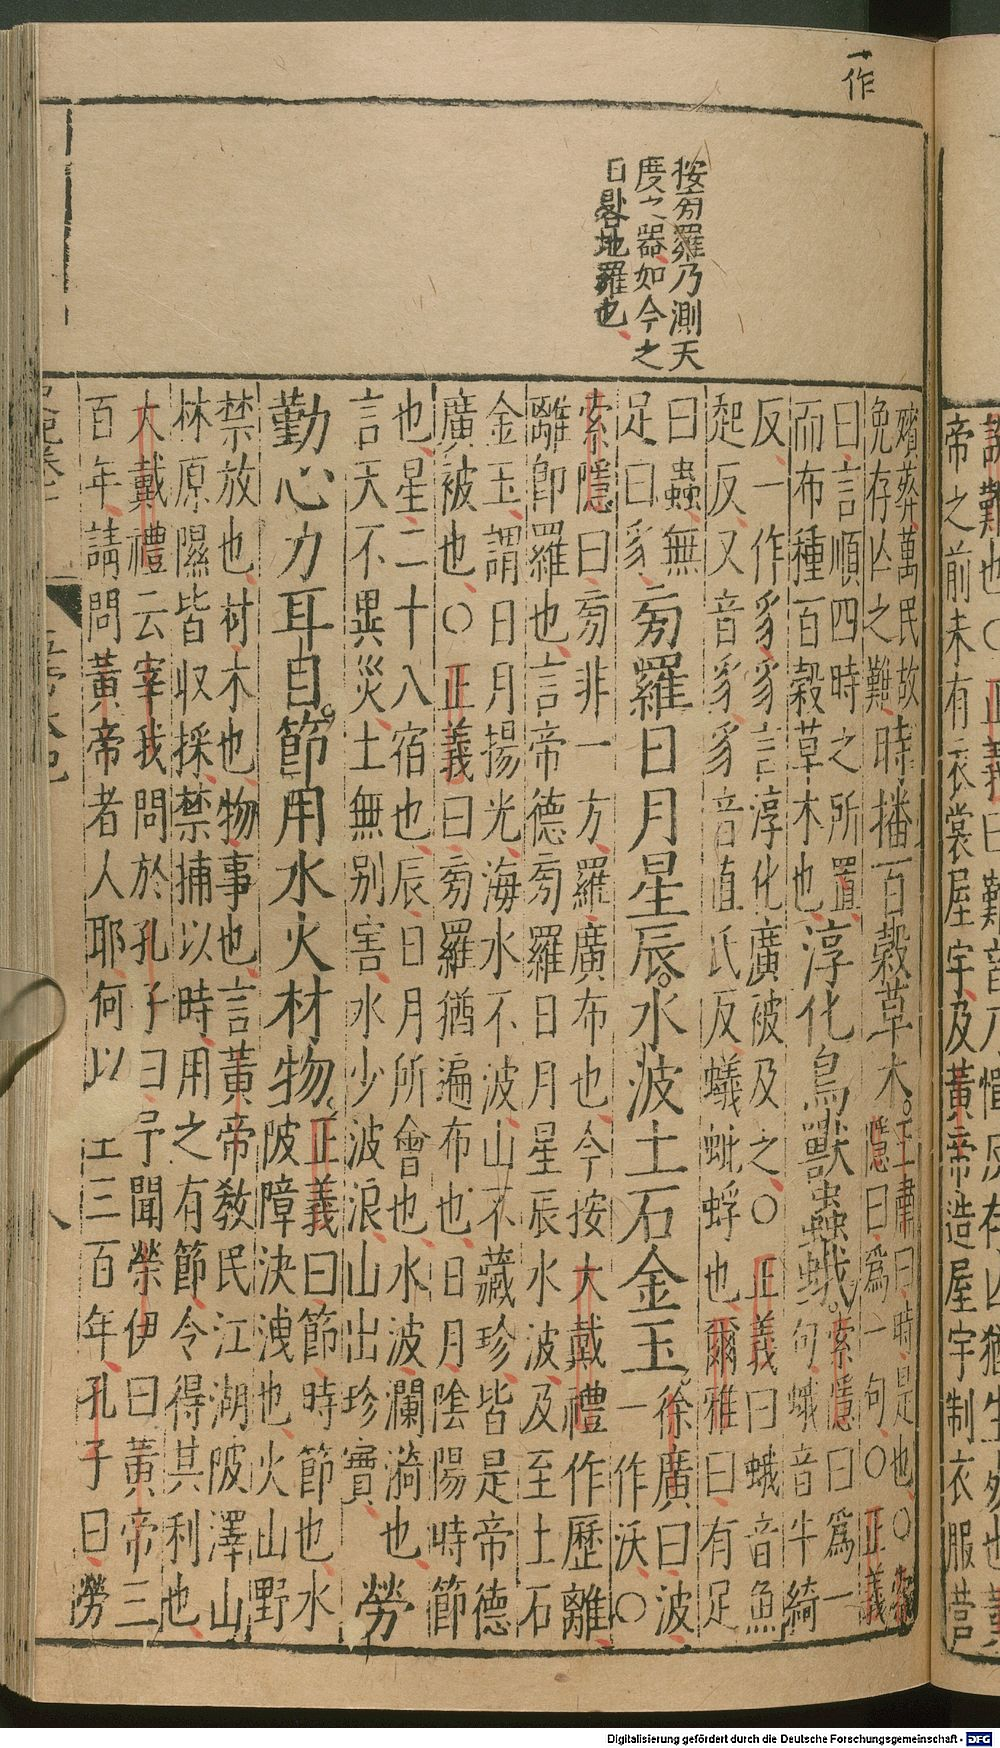 一作
按旁羅乃測天
度之器如今之
日晷地羅也
殯葬萬民故
免存亡之難時播百穀草木王肅曰時是也○索
隱曰爲一句○正義
曰言順四時之所置
而布種百穀草木也淳化鳥獸蟲蛾索隱曰爲一
句蛾音牛綺
反一作豸豸言淳化廣被及之○正義曰蛾音魚
起反又音豸豸音直氏反蟻蚍蜉也爾雅曰有足
曰蟲無
足曰豸旁羅日月星辰水波土石金玉徐廣曰波
一作沃○
索隱曰旁非一方羅廣布也今按大戴禮作歷離
離卽羅也言帝德旁羅日月星辰水波及至土石
金玉謂日月揚光海水不波山不藏珍皆是帝德
廣被也○正義曰旁羅猶遍布也日月陰陽時節
也星二十八宿也辰日月所會也水波瀾漪也
言天不異災土無別害水少波浪山出珍寶勞
勤心力耳目節用水火材物正義曰節時節也水
陂障決洩也火山野
禁放也材木也物事也言黃帝敎民江湖陂澤山
林原隰皆收採禁捕以時用之有節令得其利也
大戴禮云宰我問於孔子曰予聞榮伊曰黃帝三
百年請問黃帝者人耶何以至三百年孔子曰勞
八
帝之前未有衣裳屋宇及黃帝造屋宇制衣服營
Digitalisierung gefördert durch die Deutsche Forschungsgemeinschaft - DFG